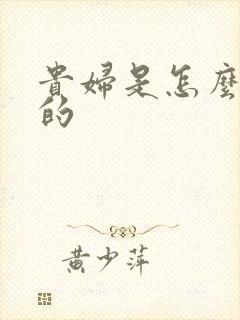 貴婦是怎麼
的
黃少萍